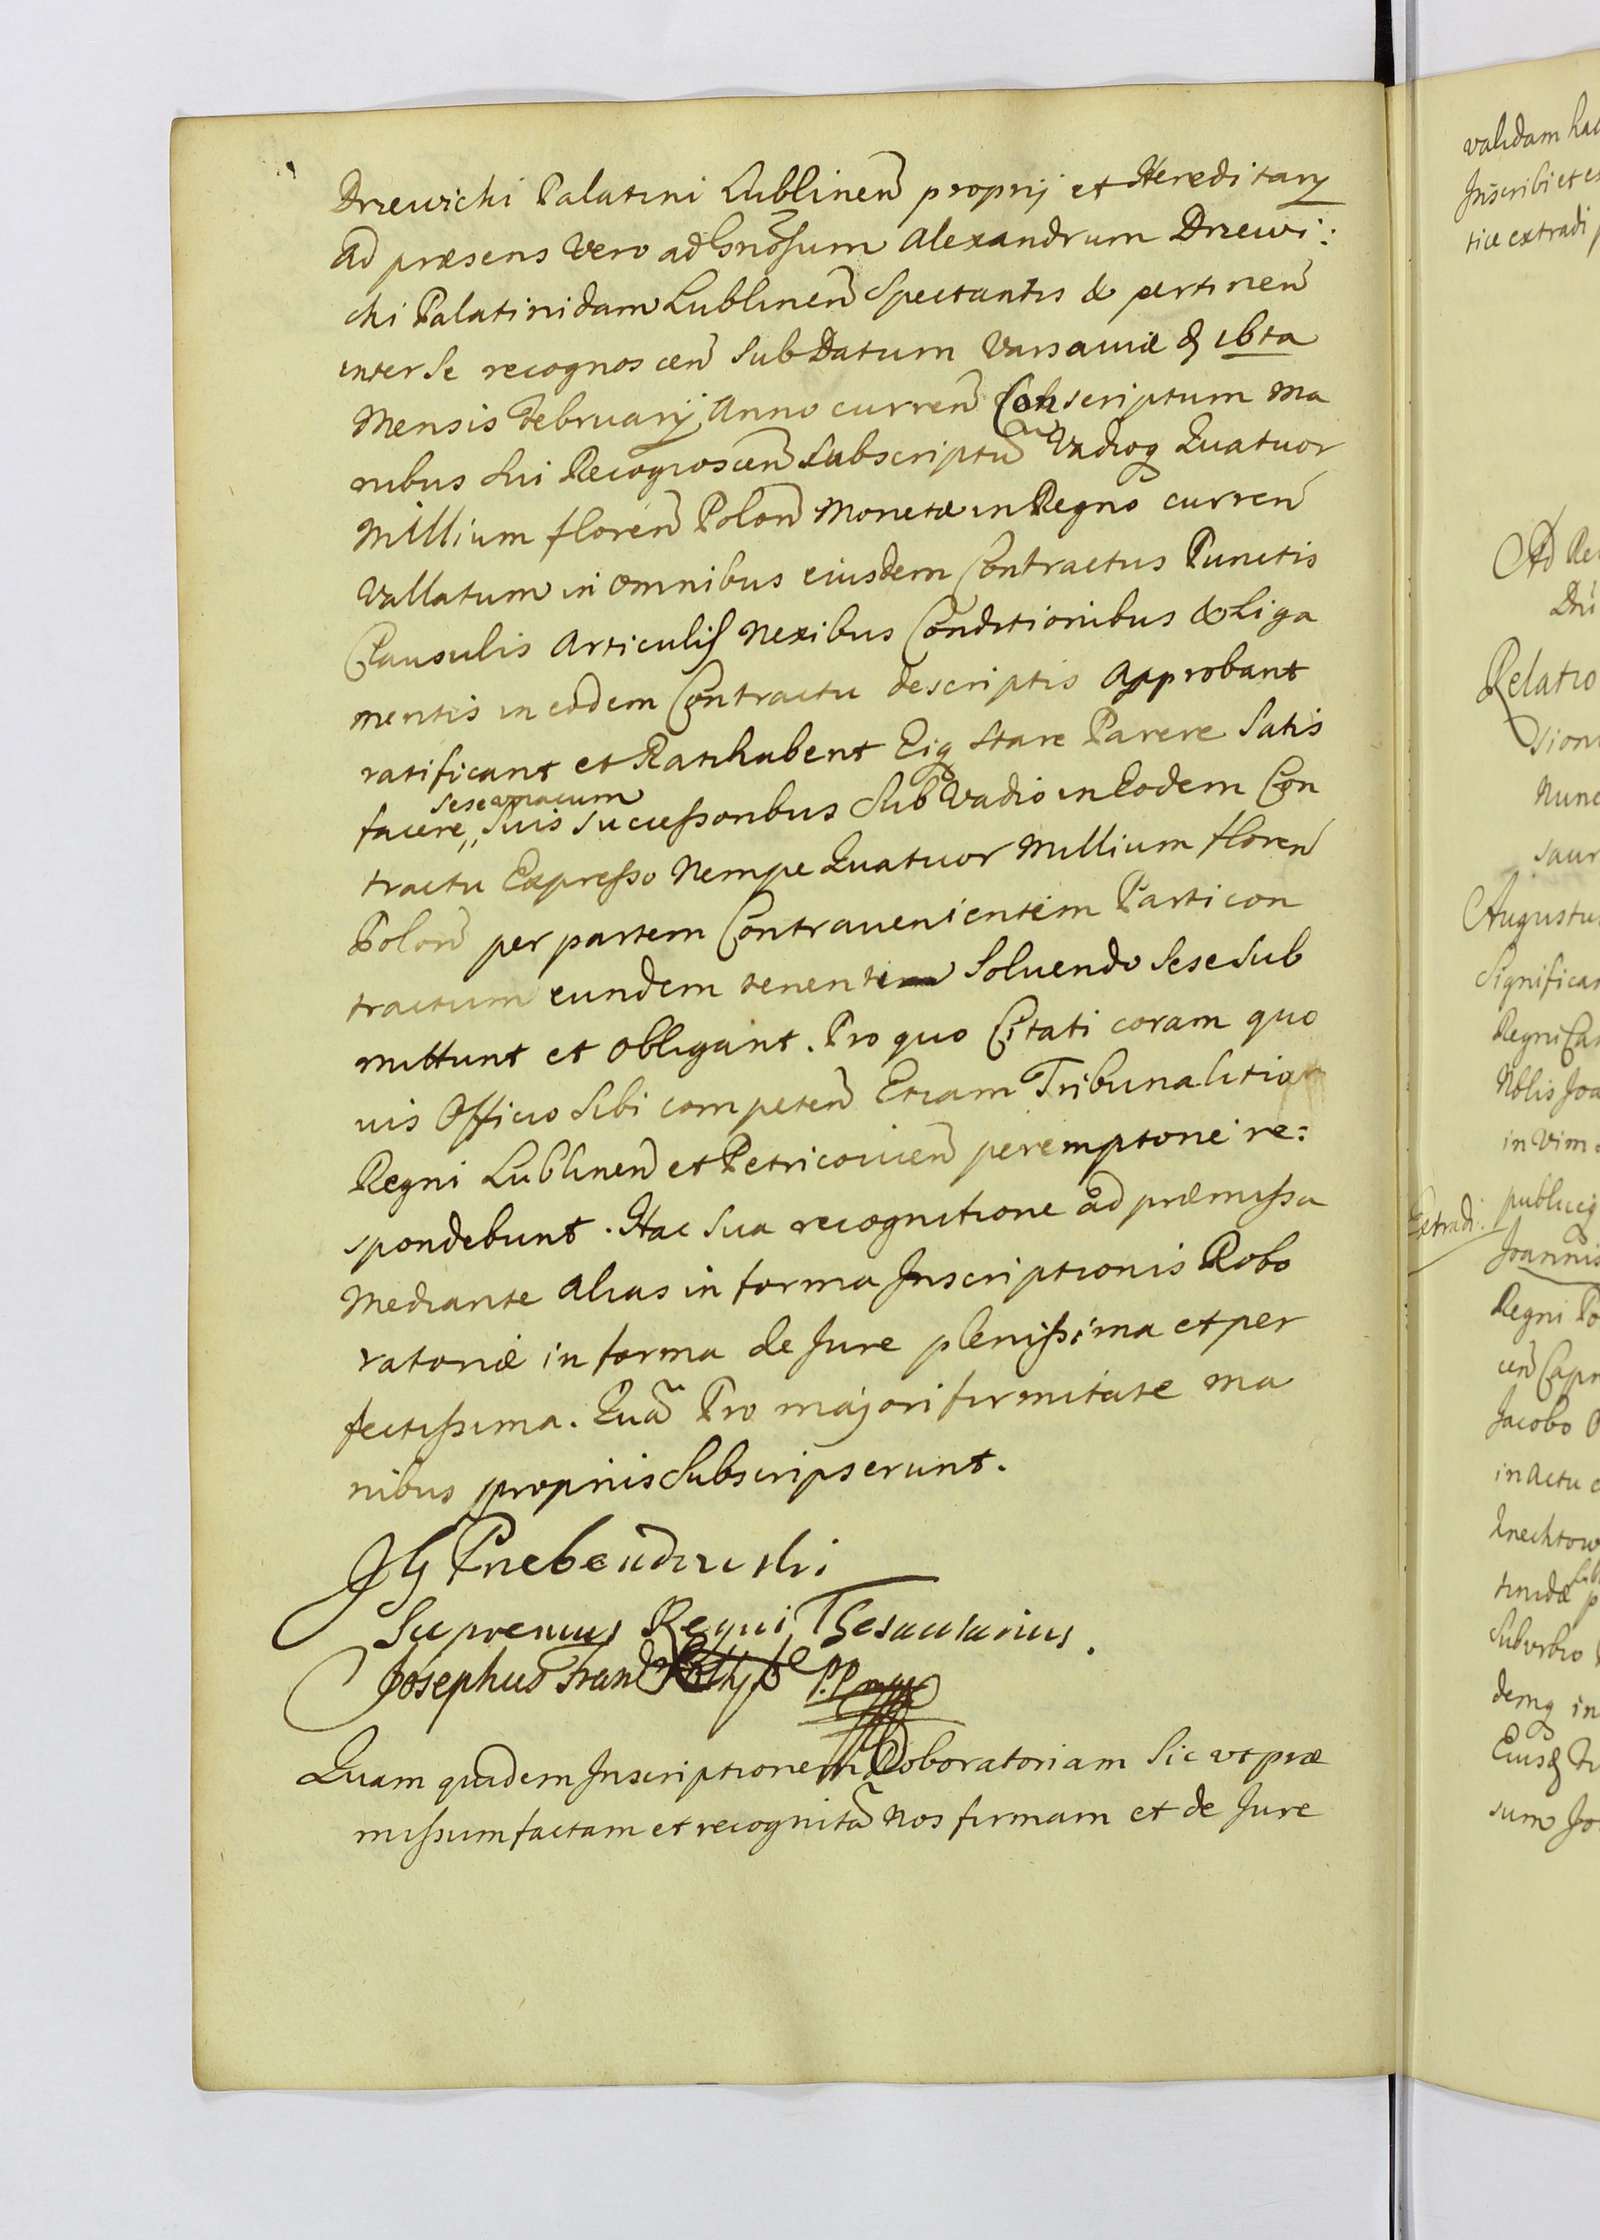 Drzewichi Palatini Lublineñ proprÿ et Hereditarÿ
ad præsens vero ad Gnõsum Alexandrum Drzewi:
chi Palatinidam Lublineñ spectantis & pertineñ
inter se recognosceñ sub Datum Varsaviæ 16ta
Mensis FebruarÿAnno curreñ Conscriptum ma
nibus sui Recognosceñ subscriptũ Vadioq Quatuor
Millium floreñ Poloñ Monetæ in Regno curreñ
Vallatum in omnibus eiusdem Contractus Punctis
Clausulis Articulis Nexibus Conditionibus & Liga
mentis in eodem Contractu descriptis Approbant
ratificant et Ratihabent Eiq stare Parere Satis
sese ac cum
facere,, suis successoribus sub Vadio in Eodem Con
tractu Expresso Nempe Quatuor Millium floreñ
Poloñ per partem Contravenientem Parti con
tractum eundem tenenti Soluendo sese sub
mittunt et obligant. Pro quo Citati coram quo
vis Officio sibi competeñ Etiam Tribunalitio
Regni Lublineñ et Petricovieñ peremptorie re:
spondebunt. Hac sua recognitione ad præmissa
Mediante alias in forma Inscriptionis Robo
ratoriæ in forma de Jure plenissima et per
fectissima. Quã Pro majori firmitate ma
nibus proprijs subscripserunt.
JG Przebendowski
Supremus Regni Thesaurarius.
Josephus Fran
Quam quidem Inscriptionem Roboratoriam sic ut præ
missum factam et recognitã Nos firmam et de Jure
validam hac
Inscribi et
tiæ extradi
Ad
Relatio
Nunc
Augustus
Significa
Regni
Nblis Joa
in vim
Extradi.
publiciq
Joannis
Regni Po
Jacobo
in Actu
demq in
sum Jo